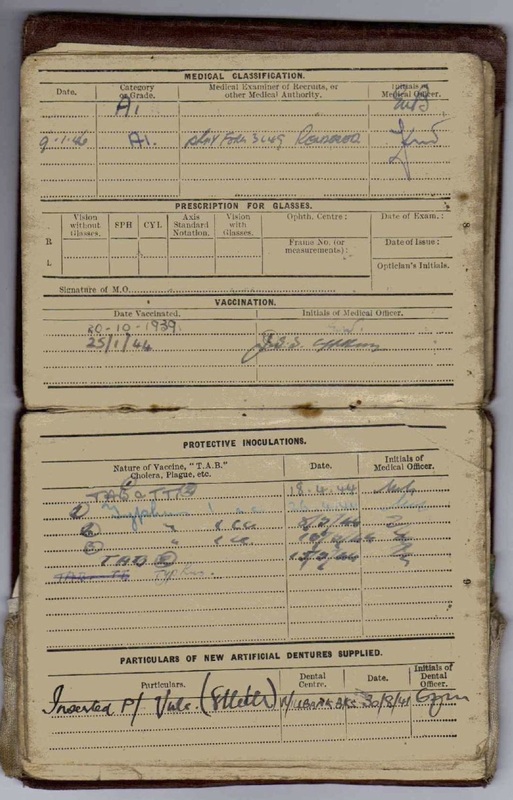 MEDICAL CLASSIFICATION.
Date. Category or Grade. Medical Examiner of Recruits, or other Medical Authority. Initials of Medical Officer.
A1
9.1.46 A1.
PRESCRIPTION FOR GLASSES.
Vision without Glasses. SPH CYL Axis Standard Notation. Vision with Glasses. Ophth. Centre: Date of Exam.:
R Frame No. (or measurements): Date of Issue:
L Optician's Initials.
Signature of M.O.
VACCINATION.
Date Vaccinated. Initials of Medical Officer.
20-10-1939.
25/1/44
8
PROTECTIVE INOCULATIONS.
Nature of Vaccine, "T.A.B." Cholera, Plague, etc. Date. Initials of Medical Officer.
TAB 18.4.44
① Typhus 1 cc
② " 1 cc
③ " 1 cc
TAB
9
PARTICULARS OF NEW ARTIFICIAL DENTURES SUPPLIED.
Particulars. Dental Centre. Date. Initials of Dental Officer.
Inserted P/ Vulc. 30/8/41